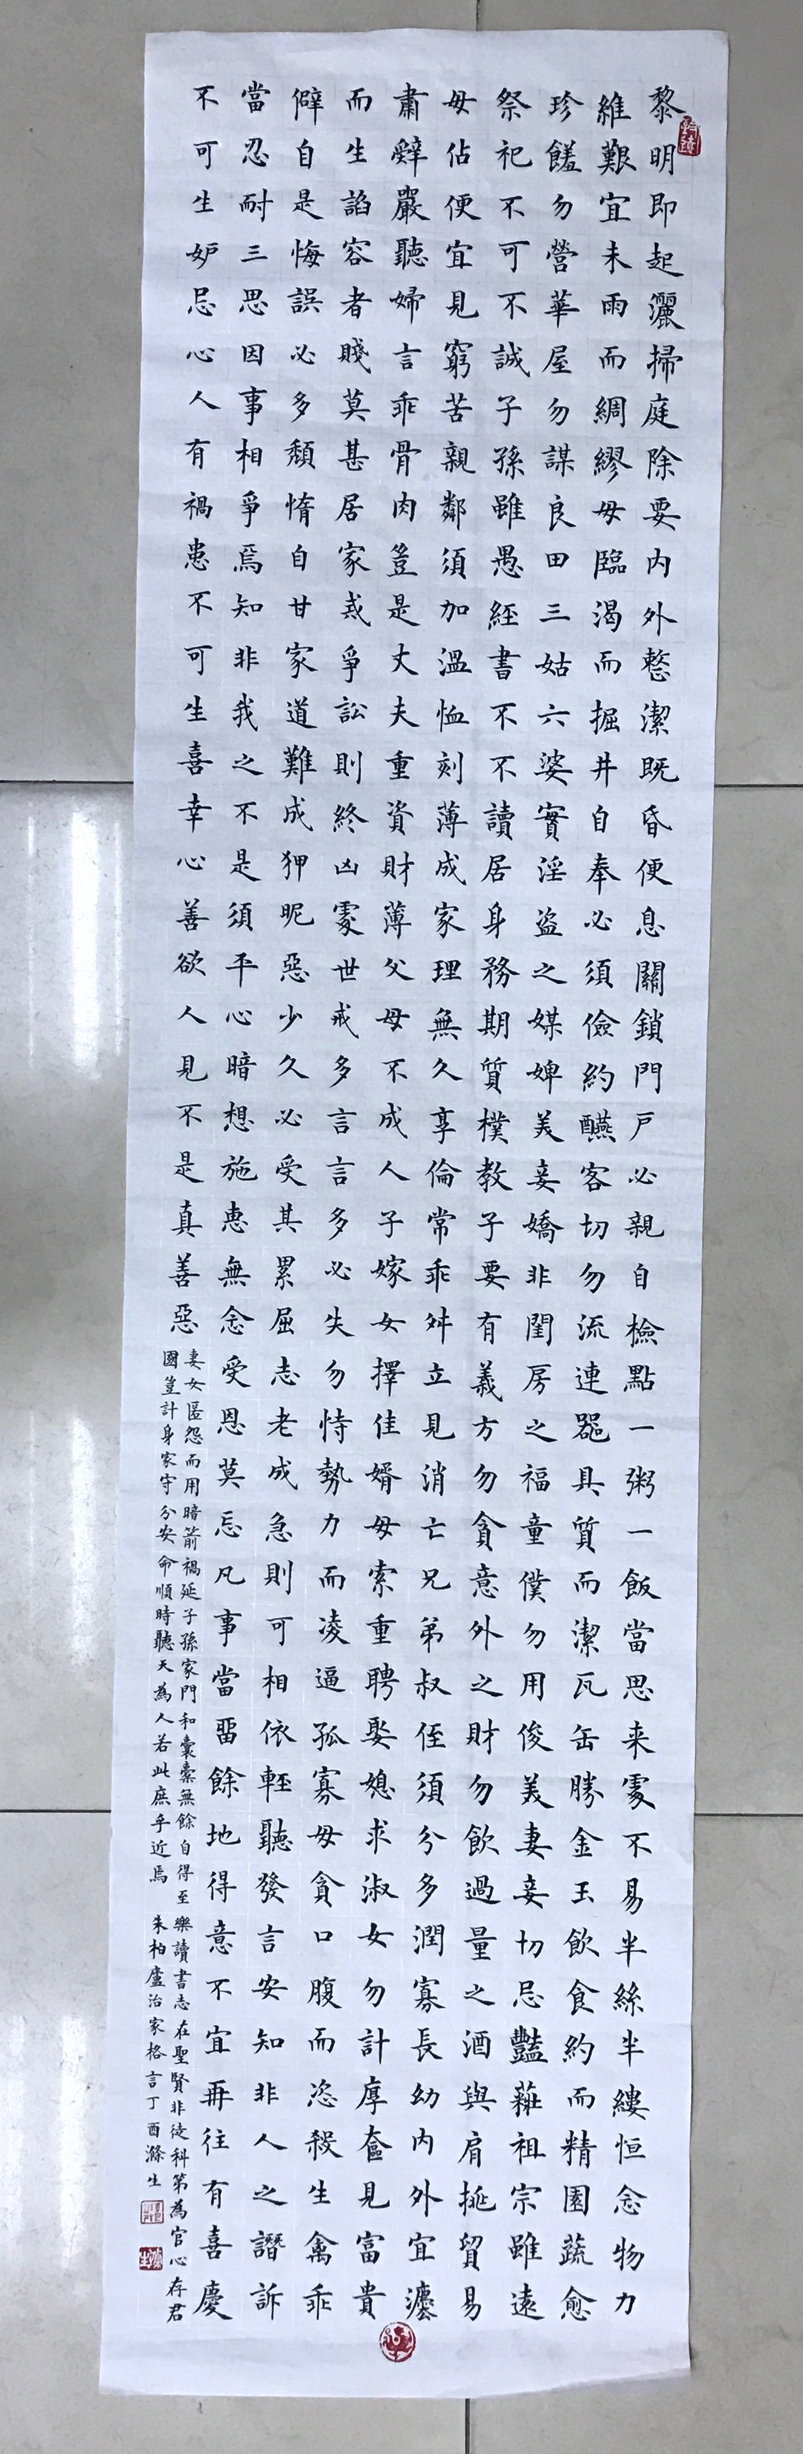 黎明即起灑掃庭除要內外整潔既昏便息關鎖門戶必親自檢點一粥一飯當思来處不易半絲半縷恒念物力
維艱宜未雨而綢繆毋臨渴而掘井自奉必須儉約醼客切勿流連器具質而潔瓦缶勝金玉飲食約而精園蔬愈
珍饈勿營華屋勿謀良田三姑六婆實淫盜之媒婢美妾嬌非閨房之福童僕勿用俊美妻妾切忌豔粧祖宗雖遠
祭祀不可不誠子孫雖愚經書不不讀居身務期質樸教子要有義方勿貪意外之財勿飲過量之酒與肩挑貿易
毋佔便宜見窮苦親鄰須加溫恤刻薄成家理無久享倫常乖舛立見消亡兄弟叔侄須分多潤寡長幼內外宜灋
肅辭嚴聽婦言乖骨肉豈是丈夫重資財薄父母不成人子嫁女擇佳婿毋索重聘娶媳求淑女勿計厚奩見富貴
而生諂容者賤莫甚居家戒爭訟則終凶處世戒多言言多必失勿恃勢力而凌逼孤寡毋貪口腹而恣殺生禽乖
僻自是悔誤必多頹惰自甘家道難成狎昵惡少久必受其累屈志老成急則可相依輕聽發言安知非人之譖訴
當忍耐三思因事相爭焉知非我之不是須平心暗想施惠無念受恩莫忘凡事當留餘地得意不宜再往有喜慶
不可生妒忌心人有禍患不可生喜幸心善欲人見不是真善惡
妻女匿怨而用暗箭禍延子孫家門和囊橐無餘自得至樂讀書志在聖賢非徒科第為官心存君
國豈計身家守分安命順時聽天為人若此庶乎近焉 朱柏廬治家格言丁酉滌生